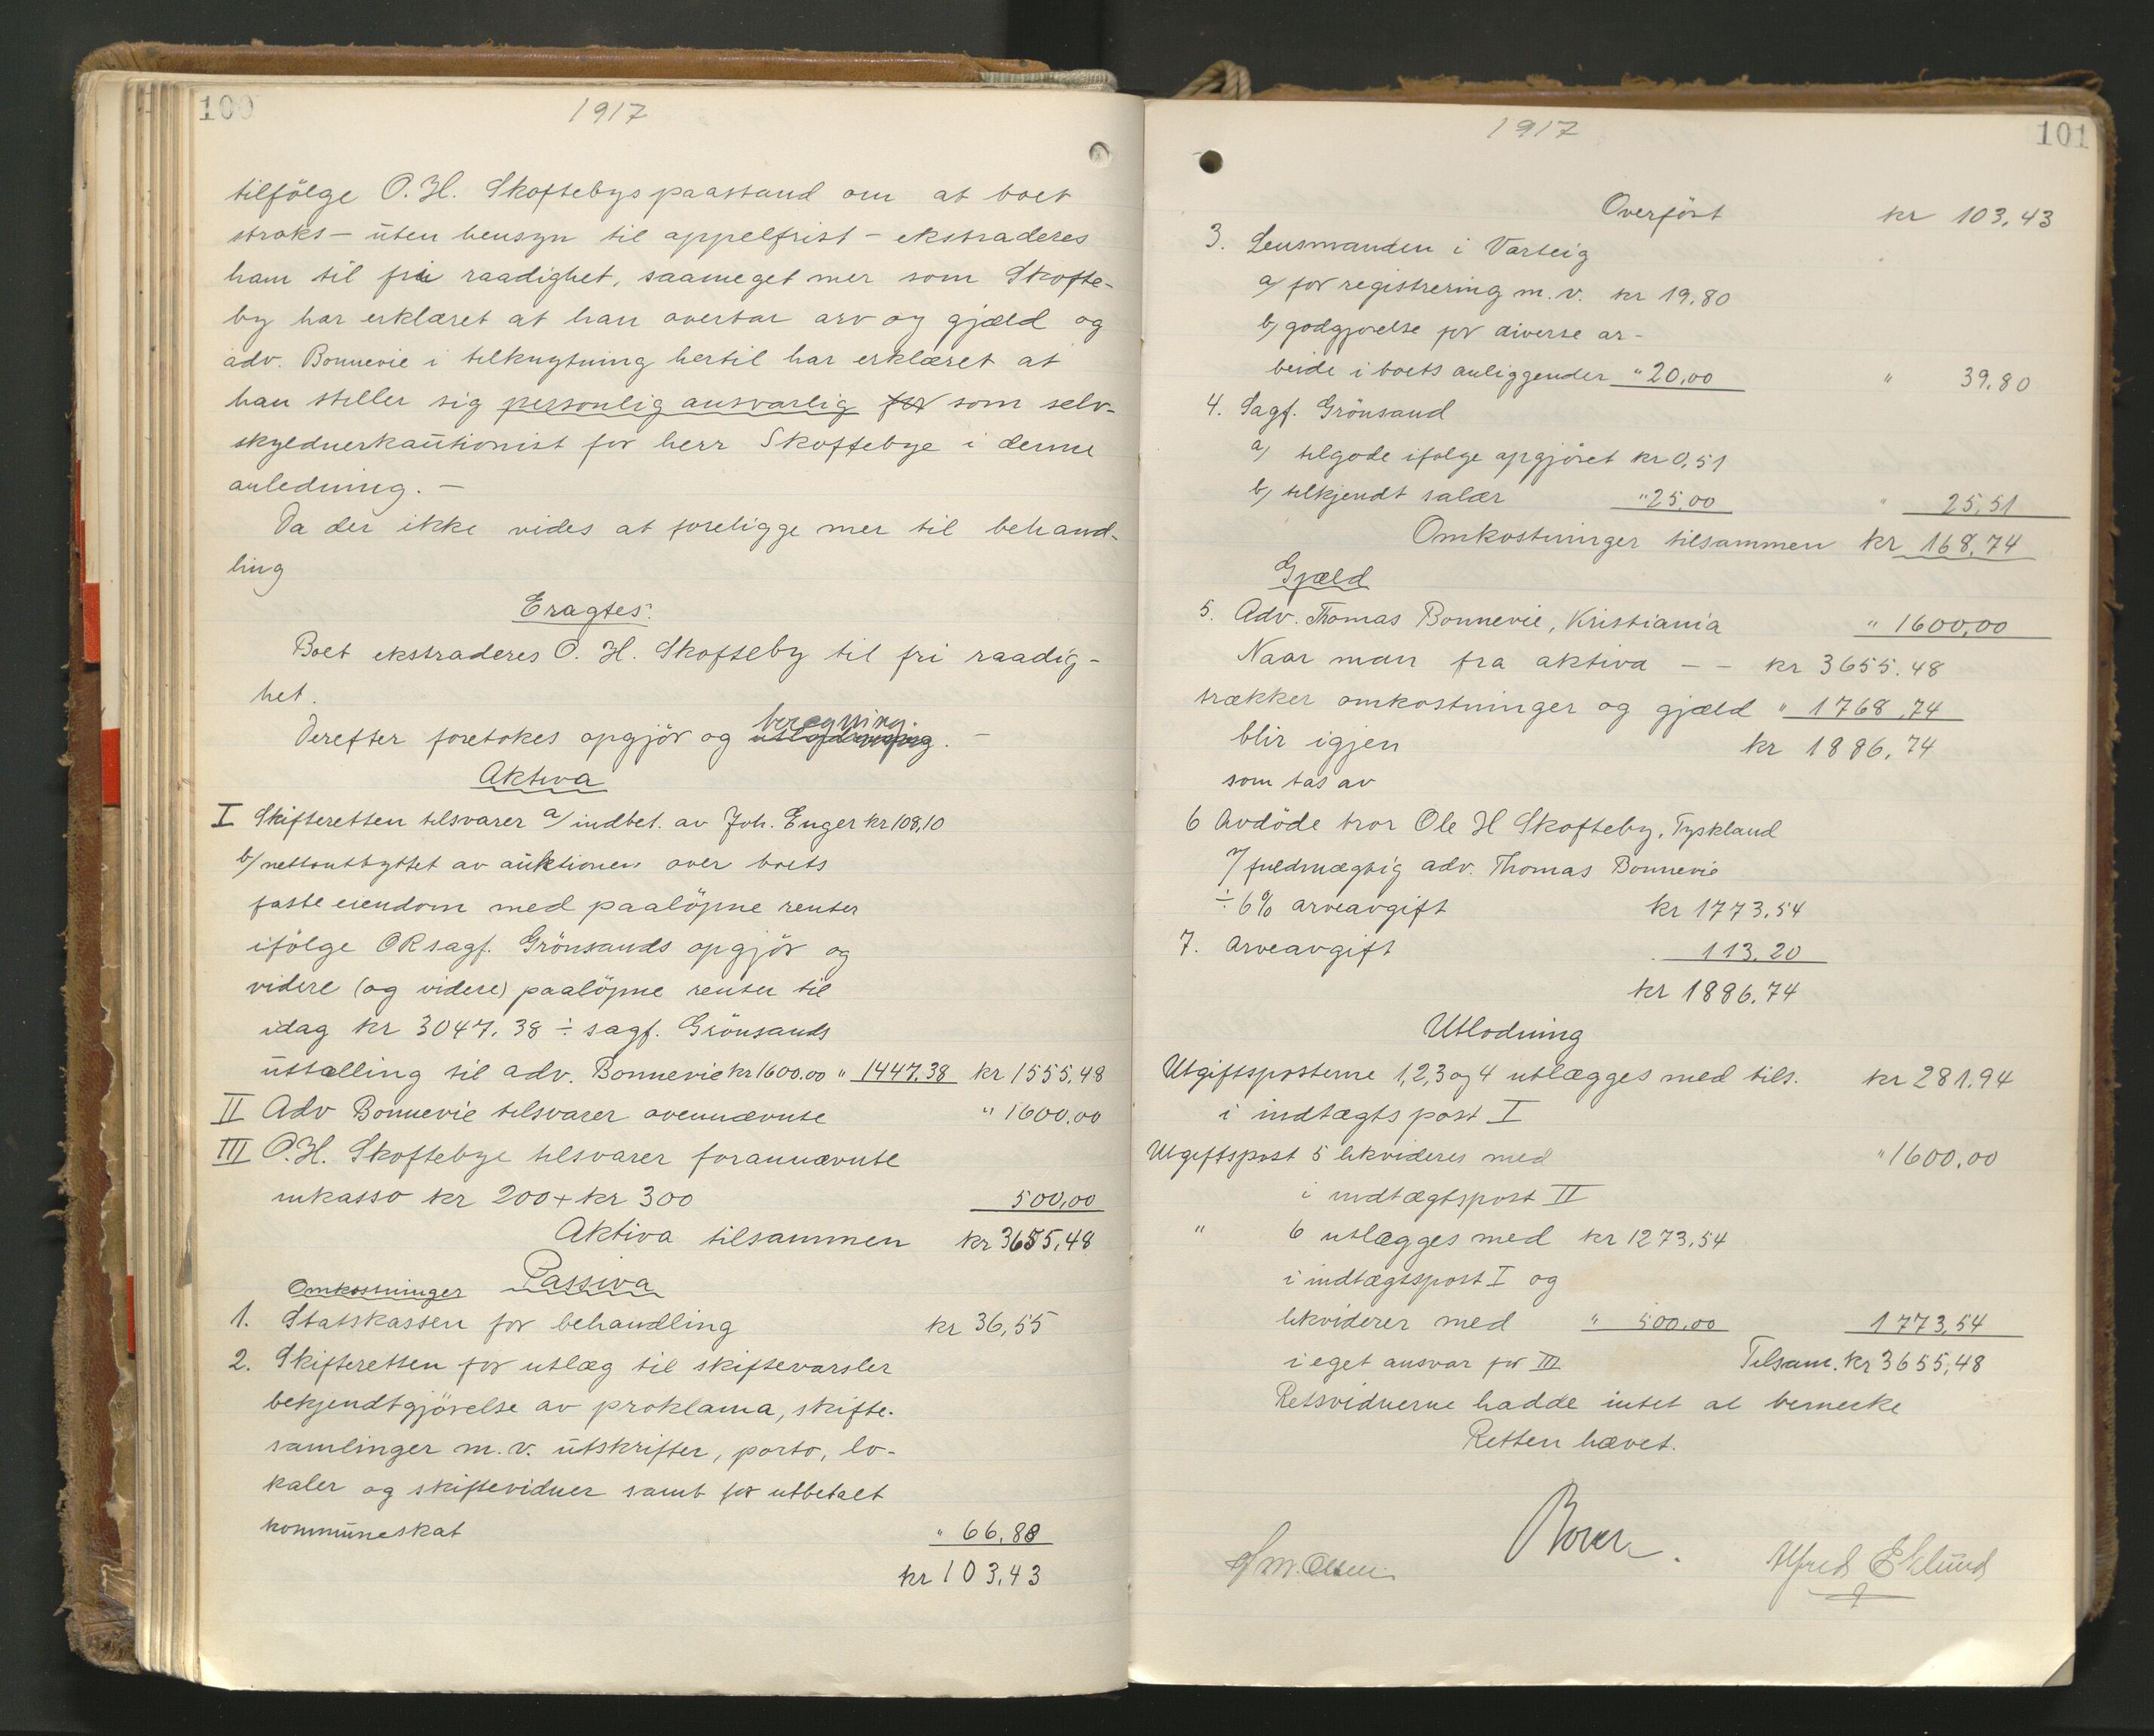 100
1917
tilfölge O. H. Skoftebys paastand om at boet
straks - uten hensyn til appelfrist - ekstraderes
ham til fri raadighet, saameget mer som Skofte-
by har erklæret at han overtar arv og gjæld og
adv. Bonnevie i tilknytning hertil har erklæret at
han stiller sig personlig ansvarlig for som selv-
skyldnerkautionist for herr Skoftebye i denne
anledning. -
Da der ikke vides at foreligge mer til behand-
ling
Eragtes:
Boet ekstraderes O. H. Skofteby til fri raadig-
het.
Derefter foretokes opgjör og beregning. -
Aktiva
I Skifteretten tilsvarer a/ indbet. av Joh. Enger kr 108,10
b/ nettoutbyttet av auktionen over boets
faste eiendom med paalöpne renter
ifölge ORsagf. Grönsands opgjör og
videre (og videre) paalöpne renter til
idag kr 3047.38 ÷ sagf. Grönsands
uttælling til adv. Bonnevie kr 1600.00 " 1447.38 kr 1555,48
II Adv Bonnevie tilsvarer ovennævnte " 1600.00
III O.H. Skoftebye tilsvarer forannævnte
inkasso kr 200 + kr 300 500,00
Aktiva tilsammen kr 3655,48
Omkostninger Passiva
1. Statskassen for behandling kr 36,55
2. Skifteretten for utlæg til skiftevarsler
bekjendtgjörelse av proklama, skifte-
samlinger m. v. utskrifter, porto, lo-
kaler og skiftevidner samt for utbetalt
kommuneskat " 66,88
kr 103,43
1917
101
Overfört kr 103,43
3. Lensmanden i Varteig
a/ for registrering m. v. kr 19,80
b/ godgjörelse for diverse ar-
beide i boets anliggender " 20,00 " 39,80
4. Sagf. Grönsand
a/ tilgode ifölge opgjöret kr 0,51
b/ tilkjendt salær " 25,00 " 25,51
Omkostninger tilsammen kr 168,74
Gjæld
5. Adv. Thomas Bonnevie, Kristiania " 1600,00
Naar man fra aktiva - - kr 3655.48
trækker omkostninger og gjæld " 1768,74
blir igjen kr 1886,74
som tas av
6 Avdöde bror Ole H Skofteby, Tyskland
v/ fuldmægtig adv. Thomas Bonnevie
÷ 6% arveavgift kr 1773,54
7. Arveavgift 113.20
kr 1886.74
Utlodning
Utgiftsposterne 1, 2, 3 og 4 utlægges med tils. kr 281.94
i indtægtspost I
Utgiftspost 5 likvideres med " 1600,00
i indtægtspost II
" 6 utlægges med kr 1273.54
i indtægtspost I og
likviderer med " 500.00 1773,54
i eget ansvar for III Tilsam. kr 3655,48
Retsvidnerne hadde intet at bemerke
Retten hævet.
M. Olsen
Alfred Eklund